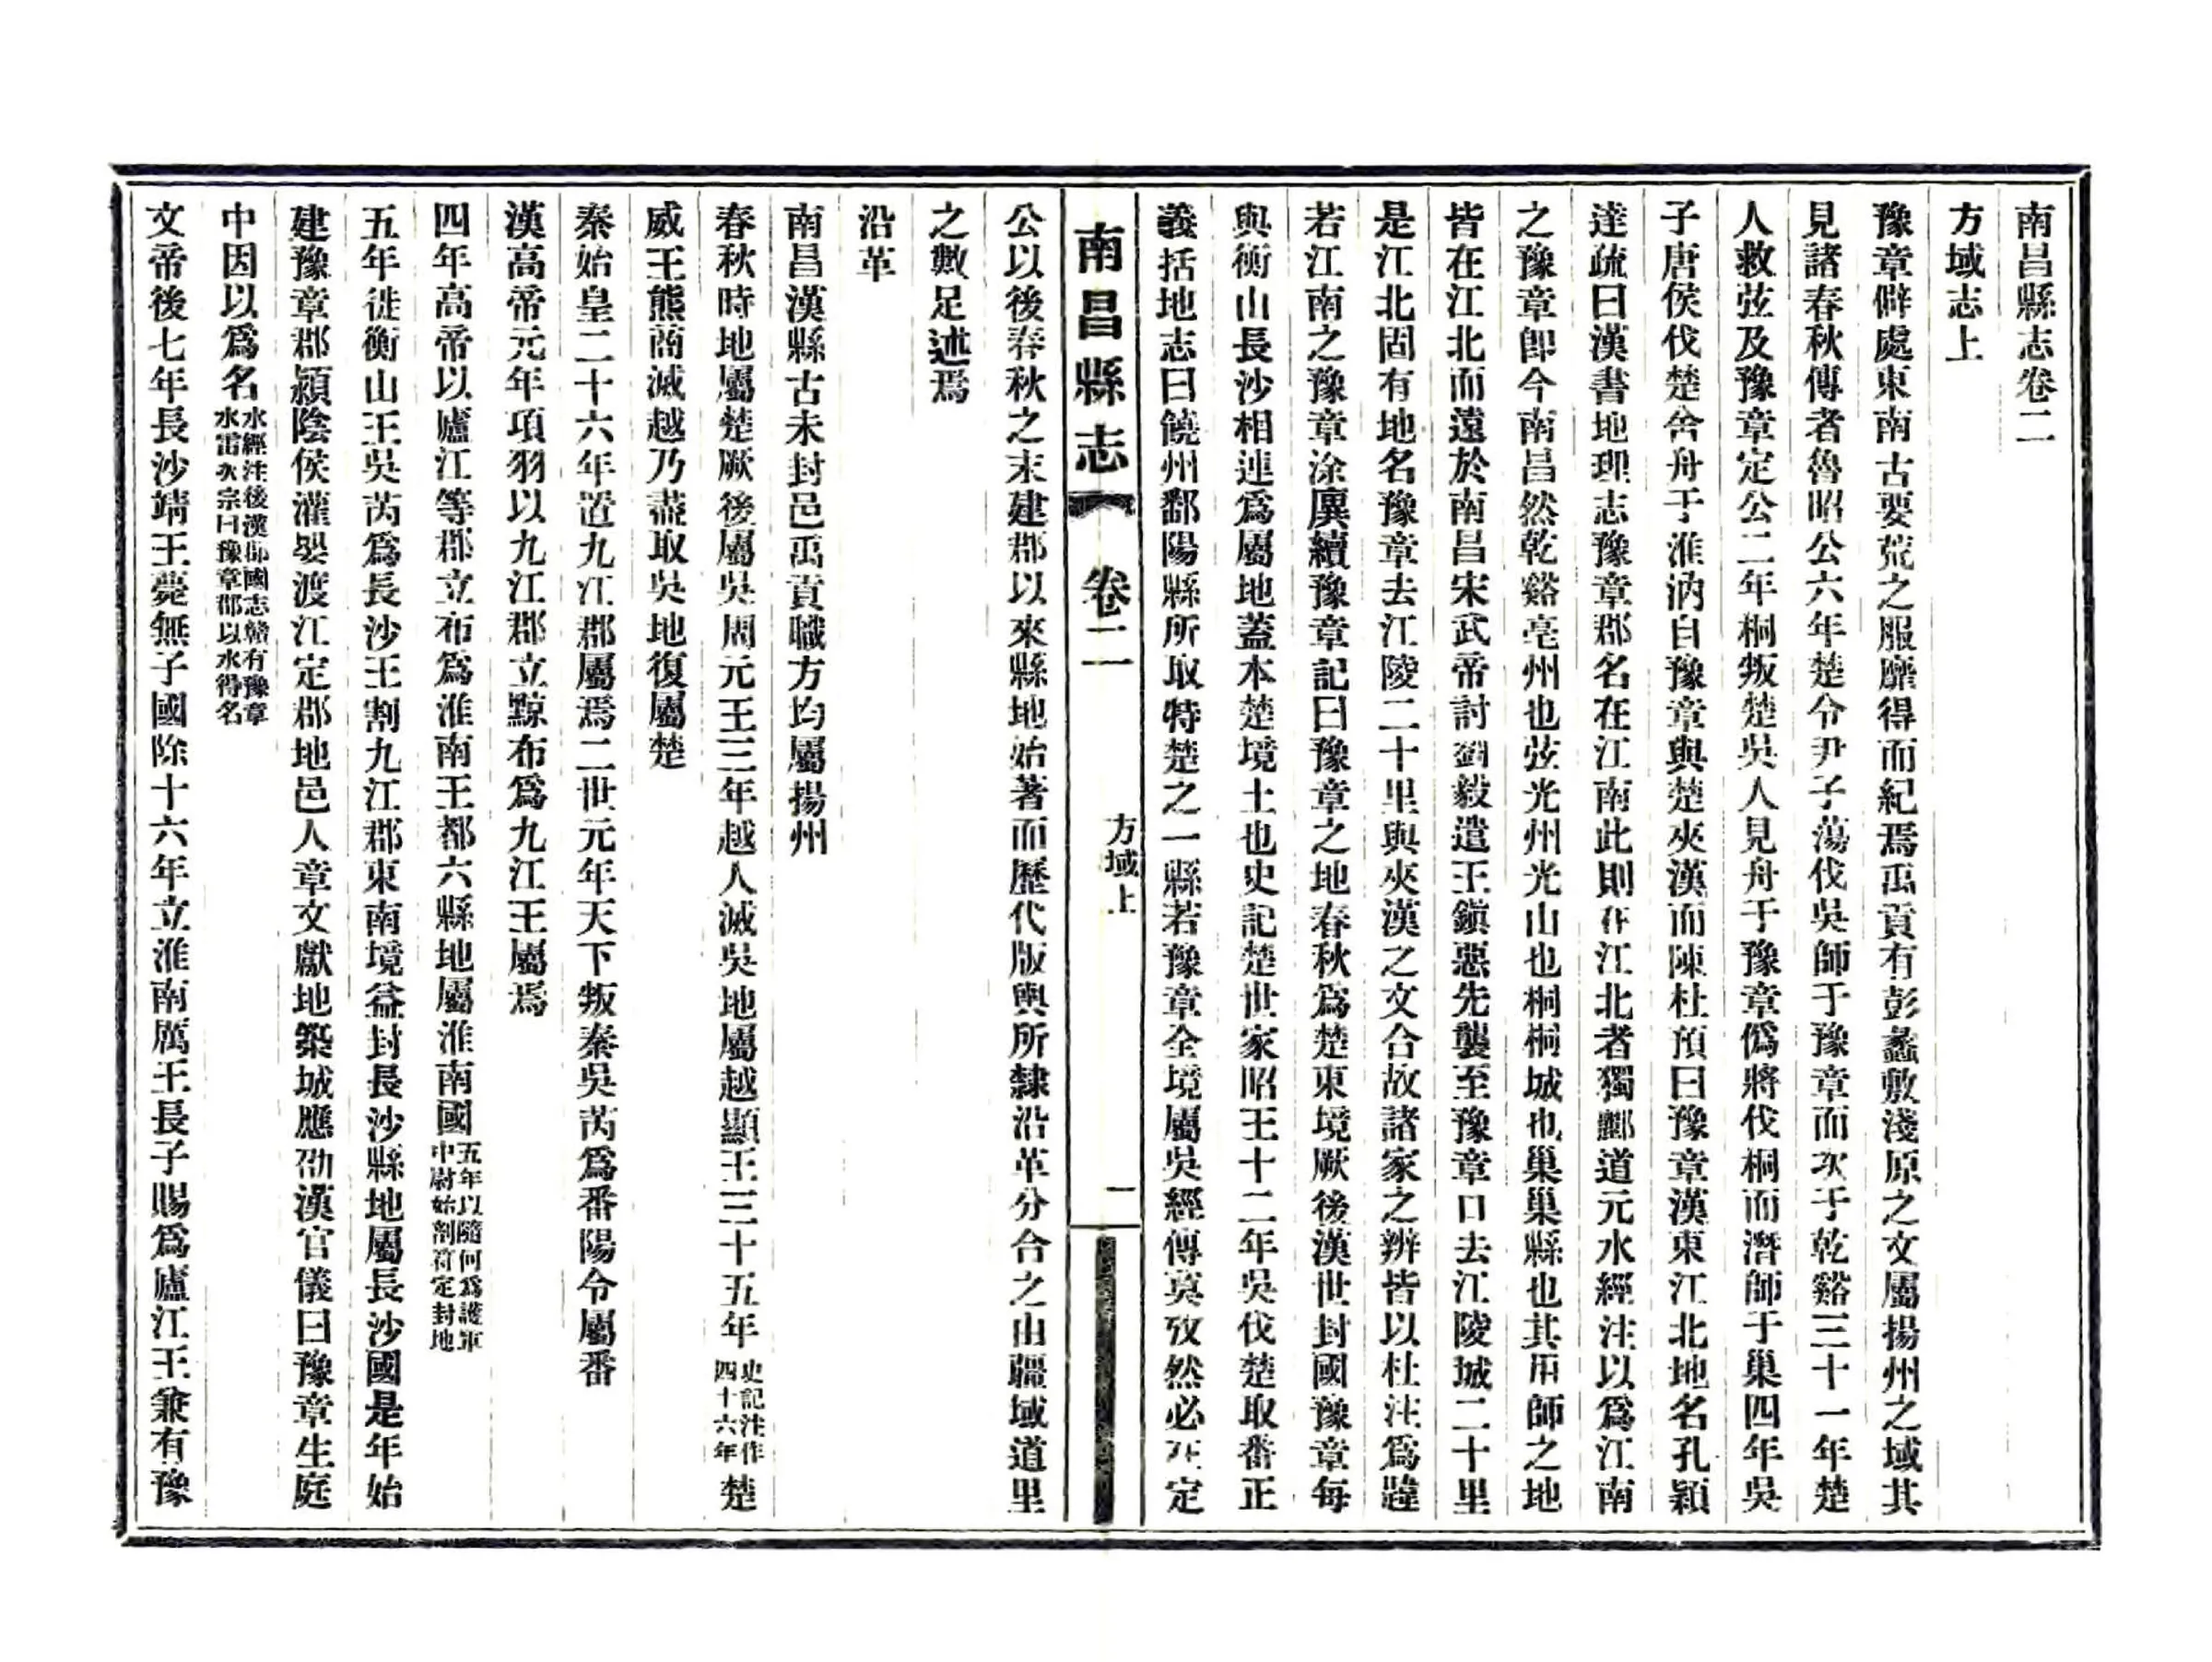 南昌縣志卷二
方域志上
豫章僻處東南古要荒之服靡得而紀焉禹貢有彭蠡敷淺原之文屬揚州之域其
見諸春秋傳者魯昭公六年楚令尹子蕩伐吳師于豫章而次于乾谿三十一年楚
人救弦及豫章定公二年桐叛楚吳人見舟于豫章僞將伐桐而潛師于巢四年吳
子唐侯伐楚舍舟于淮汭自豫章與楚夾漢而陳杜預曰豫章漢東江北地名孔穎
達疏曰漢書地理志豫章郡名在江南此則在江北者獨酈道元水經注以爲江南
之豫章卽今南昌然乾谿亳州也弦光州光山也桐桐城也巢巢縣也其用師之地
皆在江北而遠於南昌宋武帝討劉毅遣王鎭惡先襲至豫章口去江陵城二十里
是江北固有地名豫章去江陵二十里與夾漢之文合故諸家之辨皆以杜注爲韙
若江南之豫章涂廙續豫章記曰豫章之地春秋爲楚東境厥後漢世封國豫章每
與衡山長沙相連爲屬地蓋本楚境土也史記楚世家昭王十二年吳伐楚取番正
義括地志曰饒州鄱陽縣所取特楚之一縣若豫章全境屬吳經傳莫攷然必在定
南昌縣志 卷二 方域上 一
公以後春秋之末建郡以來縣地始著而歷代版輿所隸沿革分合之由疆域道里
之數足述焉
沿革
南昌漢縣古未封邑禹貢職方均屬揚州
春秋時地屬楚厥後屬吳周元王三年越人滅吳地屬越顯王三十五年史記注作四十六年楚
威王熊商滅越乃盡取吳地復屬楚
秦始皇二十六年置九江郡屬焉二世元年天下叛秦吳芮爲番陽令屬番
漢高帝元年項羽以九江郡立黥布爲九江王屬焉
四年高帝以廬江等郡立布爲淮南王都六縣地屬淮南國五年以隨何爲護軍中尉始剖符定封地
五年徙衡山王吳芮爲長沙王割九江郡東南境益封長沙縣地屬長沙國是年始
建豫章郡潁陰侯灌嬰渡江定郡地邑人章文獻地築城應劭漢官儀曰豫章生庭
中因以爲名水經注後漢郡國志贛有豫章水雷次宗曰豫章郡以水得名
文帝後七年長沙靖王薨無子國除十六年立淮南厲王長子賜爲廬江王兼有豫